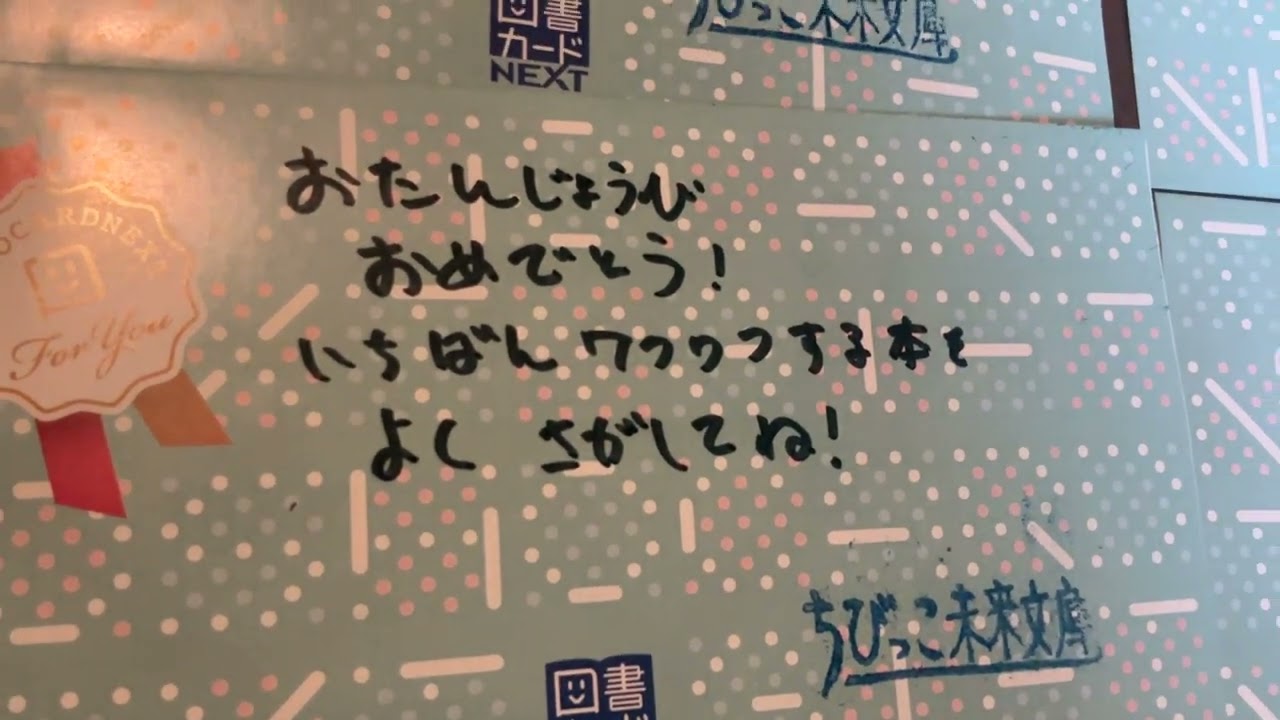 図書
カード
NEXT
ちびっこ未来文庫
おたんじょうび
おめでとう!
いちばんワクワクする本を
よく さがしてね!
For You
ちびっこ未来文庫
図書